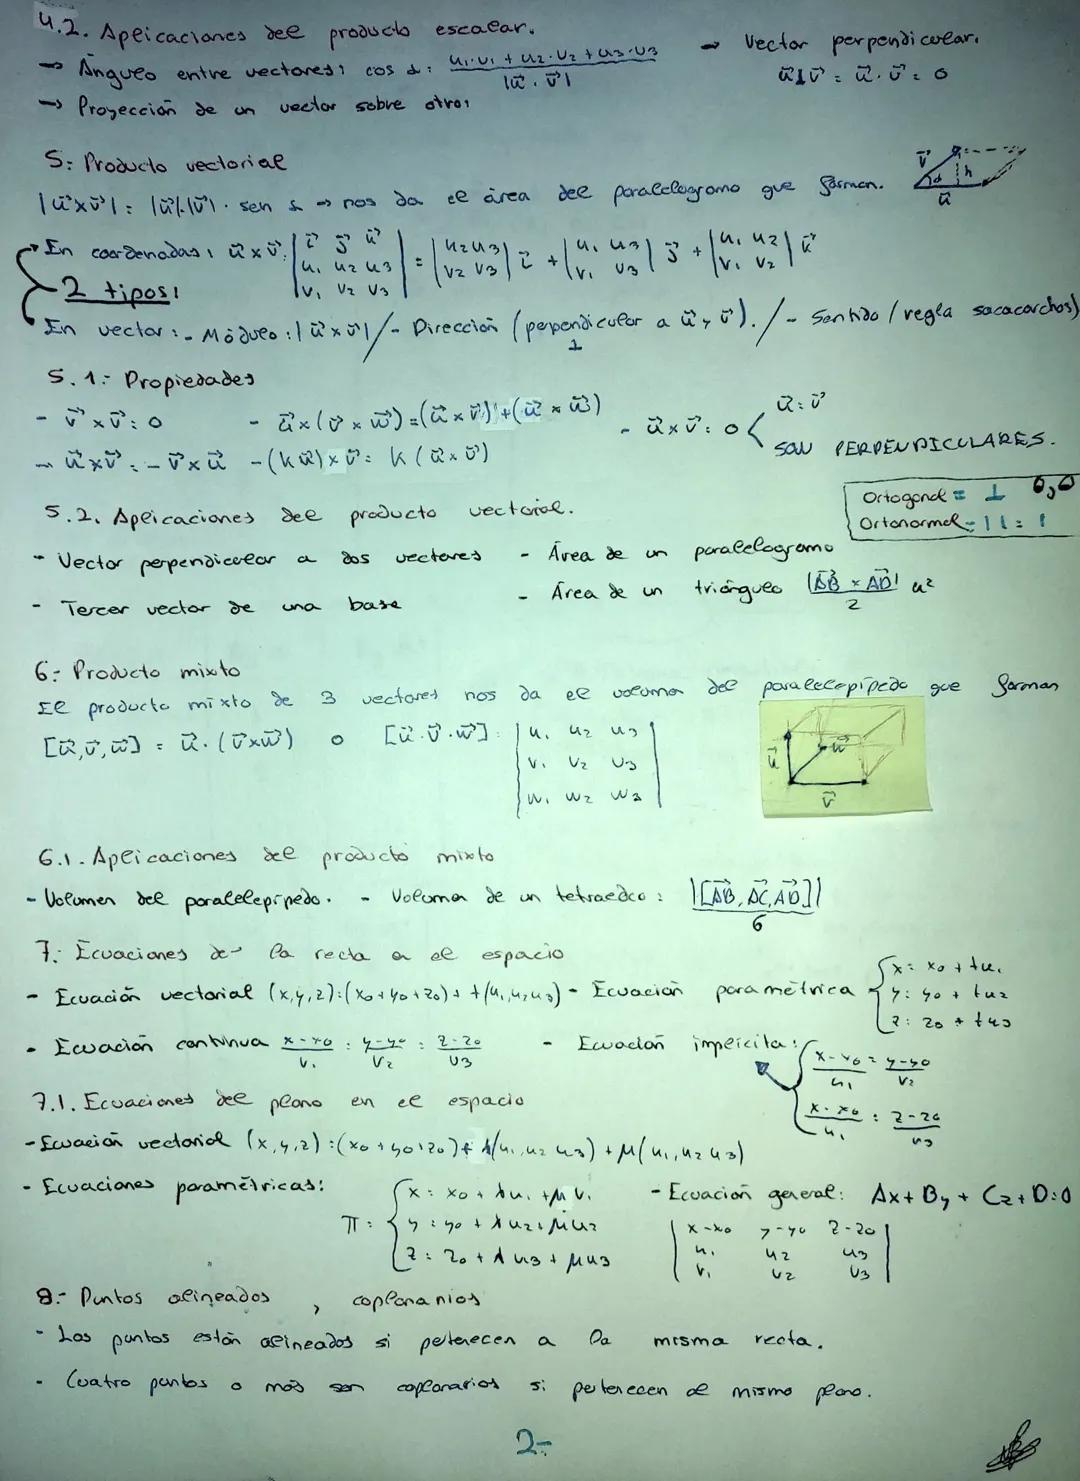 4.2. Aplicaciones del producto escalar.
→ Ángulo entre vectores: cos α: u₁·v₁ + u₂·v₂ + u₃·v₃ / |u⃗ · v⃗|
→ Vector perpendicular.
u⃗⊥v⃗ = u⃗ · v⃗ = 0
→ Proyección de un vector sobre otro:
5: Producto vectorial
|u⃗×v⃗| = |u⃗|·|v⃗| · sen α → nos da el área del paralelogramo que forman.
v⃗ α h u⃗
En coordenadas: u⃗×v⃗: |i⃗ j⃗ k⃗; u₁ u₂ u₃; v₁ v₂ v₃| = |u₂ u₃; v₂ v₃| i⃗ + |u₁ u₃; v₁ v₃| j⃗ + |u₁ u₂; v₁ v₂| k⃗
2 tipos:
En vector: - Módulo: |u⃗×v⃗| / - Dirección (perpendicular a u⃗ y v⃗). / - Sentido (regla sacacorchos)
⊥
5.1.- Propiedades
- v⃗×v⃗: 0 - u⃗×(v⃗×w⃗)=(u⃗×v⃗)+(u⃗×w⃗) - u⃗×v⃗: 0 < u⃗: v⃗
SON PERPENDICULARES.
- u⃗×v⃗: - v⃗×u⃗ - (ku⃗)×v⃗: k(u⃗×v⃗)
Ortogonal = ⊥ 0,0
Ortonormal - | | = 1
5.2. Aplicaciones del producto vectorial.
- Vector perpendicular a dos vectores - Área de un paralelogramo
- Tercer vector de una base - Área de un triángulo |AB⃗ × AD⃗| / 2 u²
6: Producto mixto
El producto mixto de 3 vectores nos da el volumen del paralelepípedo que forman
[u⃗,v⃗,w⃗] = u⃗·(v⃗×w⃗) o [u⃗·v⃗·w⃗]: |u₁ u₂ u₃; v₁ v₂ v₃; w₁ w₂ w₃|
u⃗ w⃗ v⃗
6.1. Aplicaciones del producto mixto
- Volumen del paralelepípedo. - Volumen de un tetraedro: |[AB⃗, AC⃗, AD⃗]| / 6
7: Ecuaciones de la recta en el espacio
- Ecuación vectorial (x,y,z):(x₀+y₀+z₀)+t(u₁,u₂u₃) - Ecuación paramétrica { x: x₀ + tu₁
y: y₀ + tu₂
z: z₀ + tu₃
- Ecuación continua x-x₀ / v₁ : y-y₀ / v₂ : z-z₀ / v₃ - Ecuación implícita: { x-x₀ / u₁ = y-y₀ / v₂
x-x₀ / u₁ : z-z₀ / u₃
7.1. Ecuaciones del plano en el espacio
- Ecuación vectorial (x,y,z):(x₀+y₀+z₀)+λ(u₁,u₂u₃)+μ(u₁,u₂u₃)
- Ecuaciones paramétricas: π: { x: x₀ + λu₁ + μv₁
y: y₀ + λu₂ + μu₂
z: z₀ + λu₃ + μu₃
- Ecuación general: Ax+By+Cz+D:0
|x-x₀ y-y₀ z-z₀; u₁ u₂ u₃; v₁ v₂ v₃|
8.- Puntos alineados, coplanarios
- Los puntos están alineados si pertenecen a la misma recta.
- Cuatro puntos o más son coplanarios si pertenecen al mismo plano.
2-